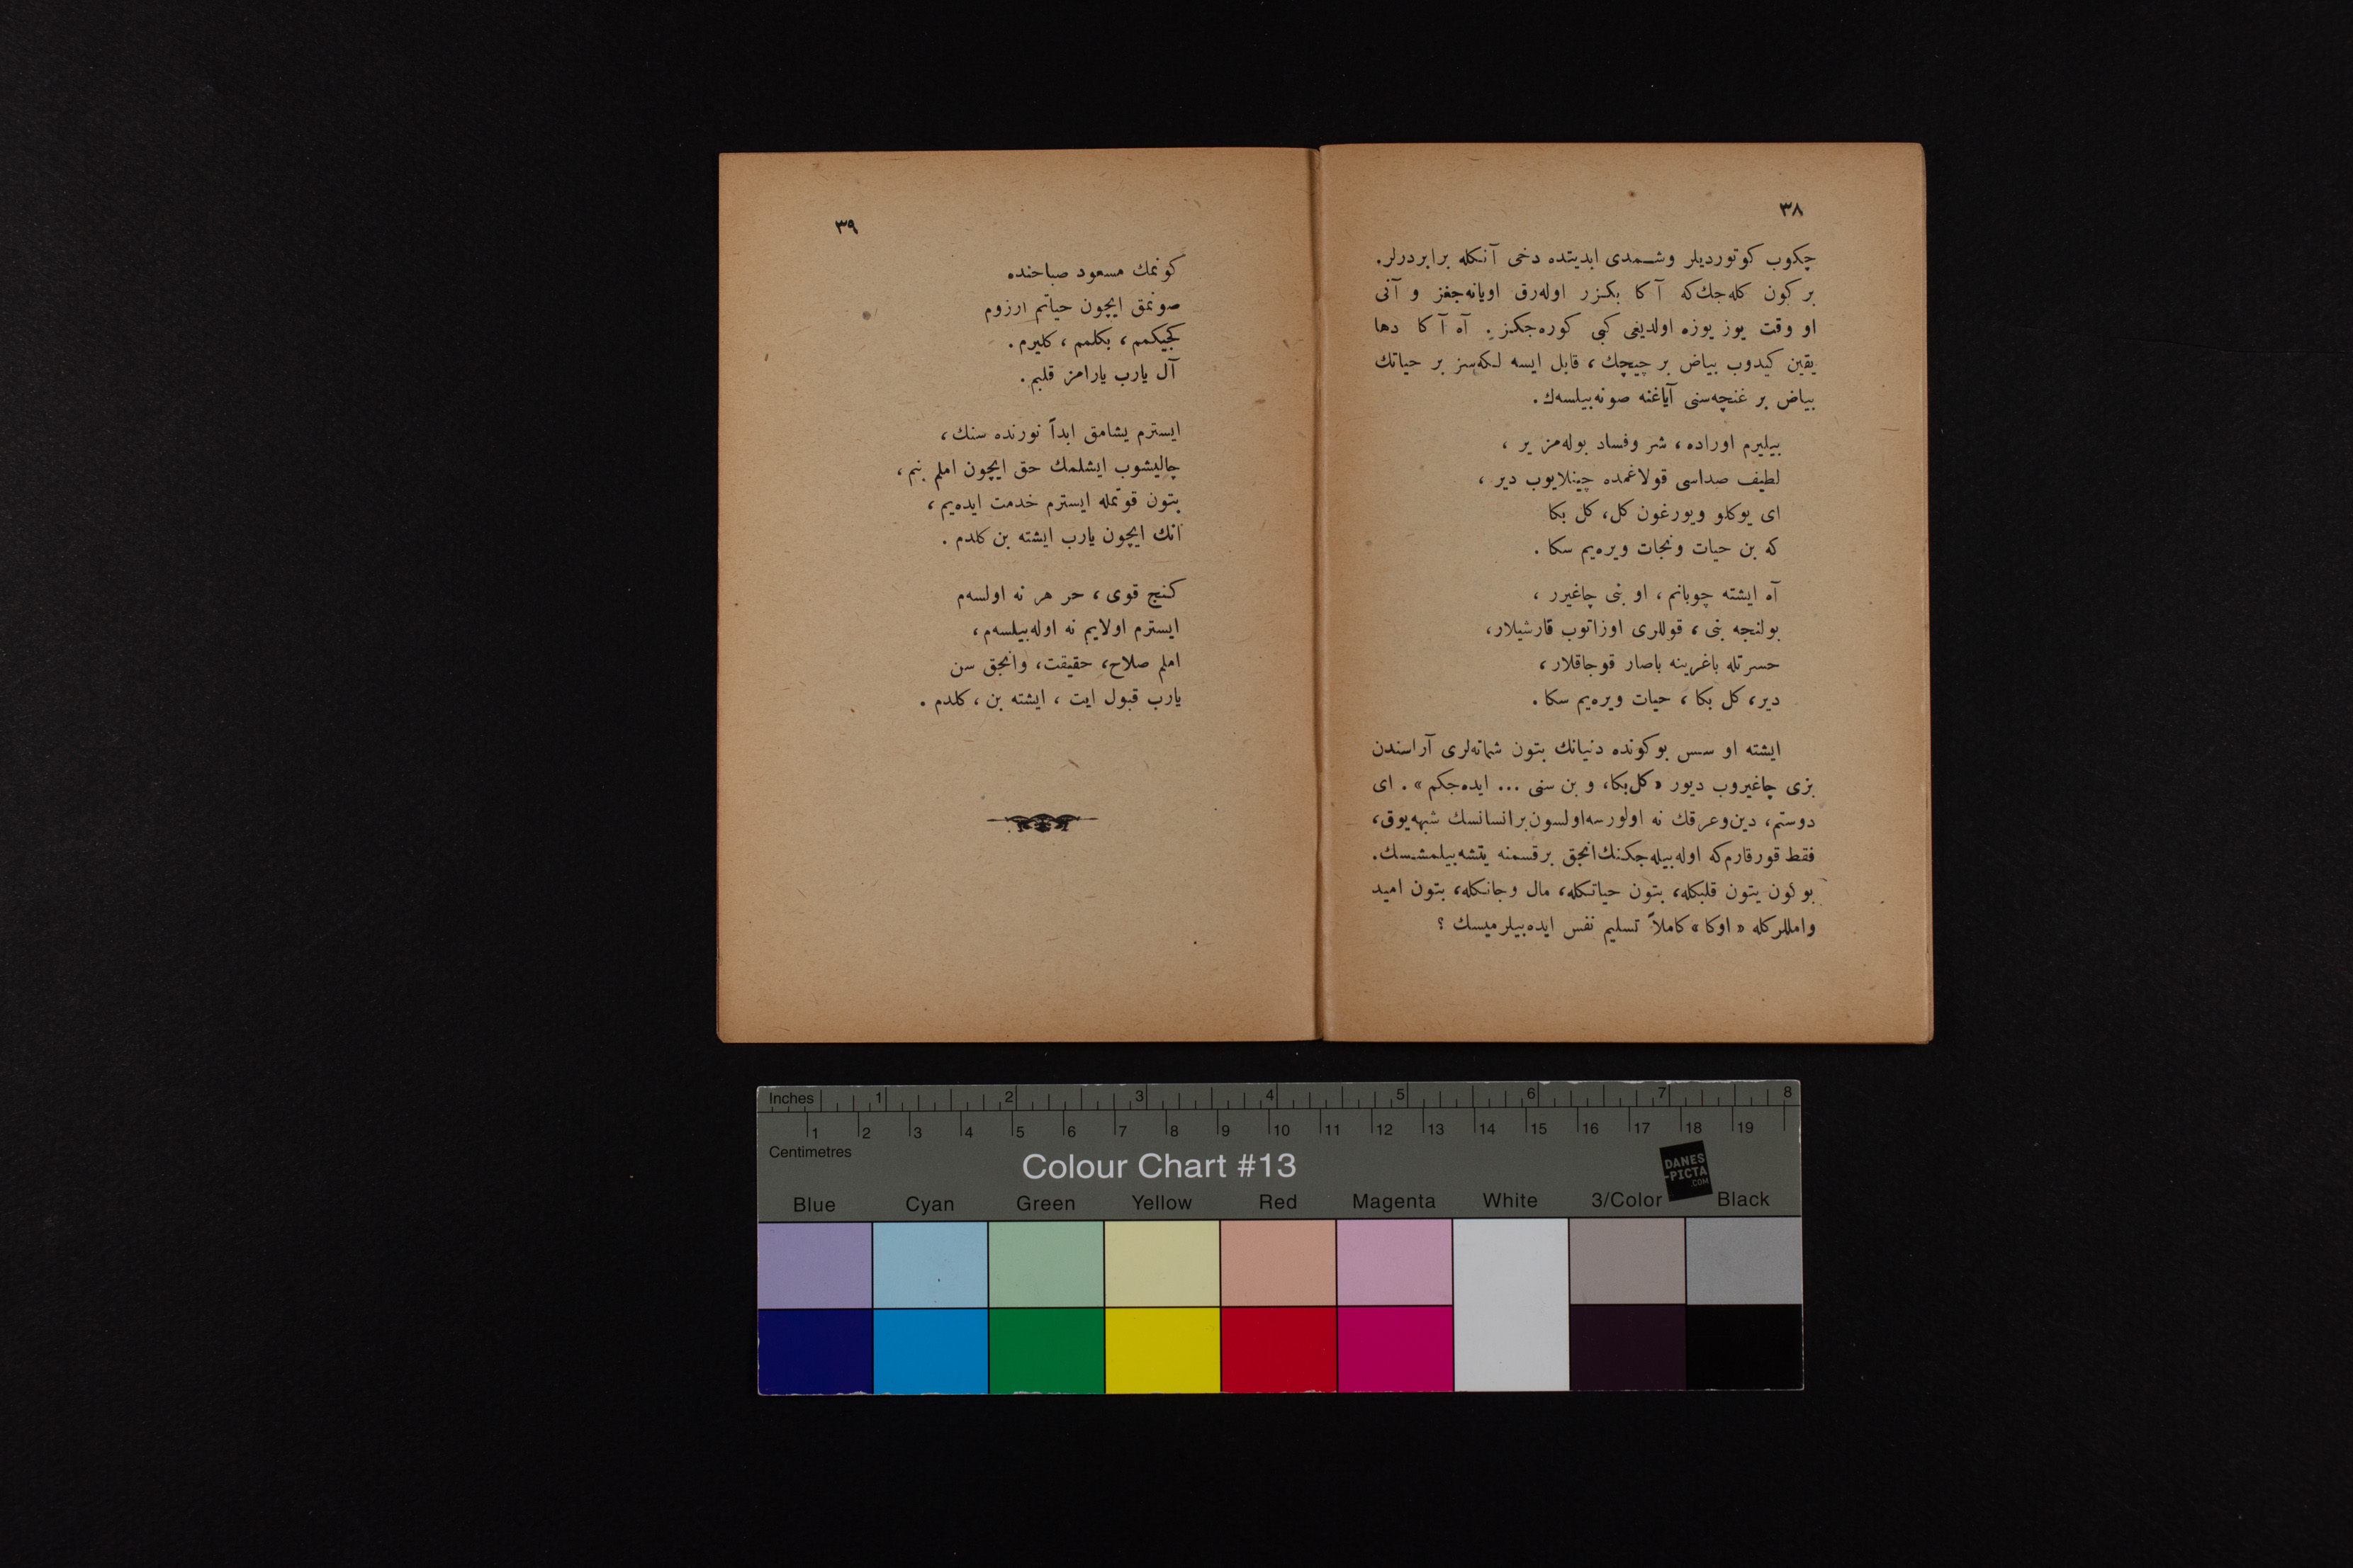 ٣٨
چكوب كوتورديلر وشـمدى ابديتده دخى آنكله برابردرلر.
بر كون كله‌جك‌كه آ كا بكـزر اوله‌رق اويانه‌جغز و آنى
او وقت يوز يوزه اولديغى كبى كوره‌جكـز. آه آ كا دها
يقين كيدوب بياض بر چيچك، قابل ايسه لـكه‌سز بر حياتك
بياض بر غنچه‌سنى آياغنه صونه‌بيلسه‌ك.
بيليرم اوراده، شر وفساد بوله‌مز ير ،
لطيف صداسى قولاغمده چينلايوب دير ،
اى يوكلو ويورغون كل، كل بكا
كه بن حيات ونجات ويره‌يم سكا .
آه ايشته چوبانم، او بنى چاغيرر ،
بولنجه بنى، قوللرى اوزاتوب قارشيلار،
حسرتله باغرينه باصار قوجاقلار،
دير، كل بكا، حيات ويره‌يم سكا .
ايشته او سس بوكونده دنيانك بتون شماته‌لرى آراسندن
بزى چاغيروب ديور «كل‌بكا، و بن سنى ... ايده‌جكم» . اى
دوستم، دين‌وعرقك نه اولورسه‌اولسون‌برانسانسك شبهه‌يوق،
فقط قورقارم‌كه اوله‌بيله‌جكـنك‌انجق برقسمنه يتشه‌بيلمشـسك.
بو كون بتون قلبكله، بتون حياتـكله، مال وجانـكله، بتون اميد
وامللركله «اوكا» كاملاً تسليم نفس ايده‌بيلرميسك ؟
٣٩
كونمك مسعود صباحنده
صونمق ايچون حياتم ارزوم
كجيكمم، بكلمم، كليرم.
آل يارب يارامز قلبم.
ايسترم يشامق ابداً نورنده سنك،
چاليشوب ايشلمك حق ايچون املم بنم،
بتون قوتمله ايسترم خدمت ايده‌يم،
انك ايچون يارب ايشته بن كلدم.
كـنج قوى، حر هر نه اولسه‌م
ايسترم اولايم نه اوله‌بيلسه‌م،
املم صلاح، حقيقت، وانجق سن
يارب قبول ايت ، ايشته بن، كلدم.
Inches 1 2 3 4 5 6 7 8
1 2 3 4 5 6 7 8 9 10 11 12 13 14 15 16 17 18 19
Centimetres
Colour Chart #13
DANES
-PICTA
.COM
Blue Cyan Green Yellow Red Magenta White 3/Color Black